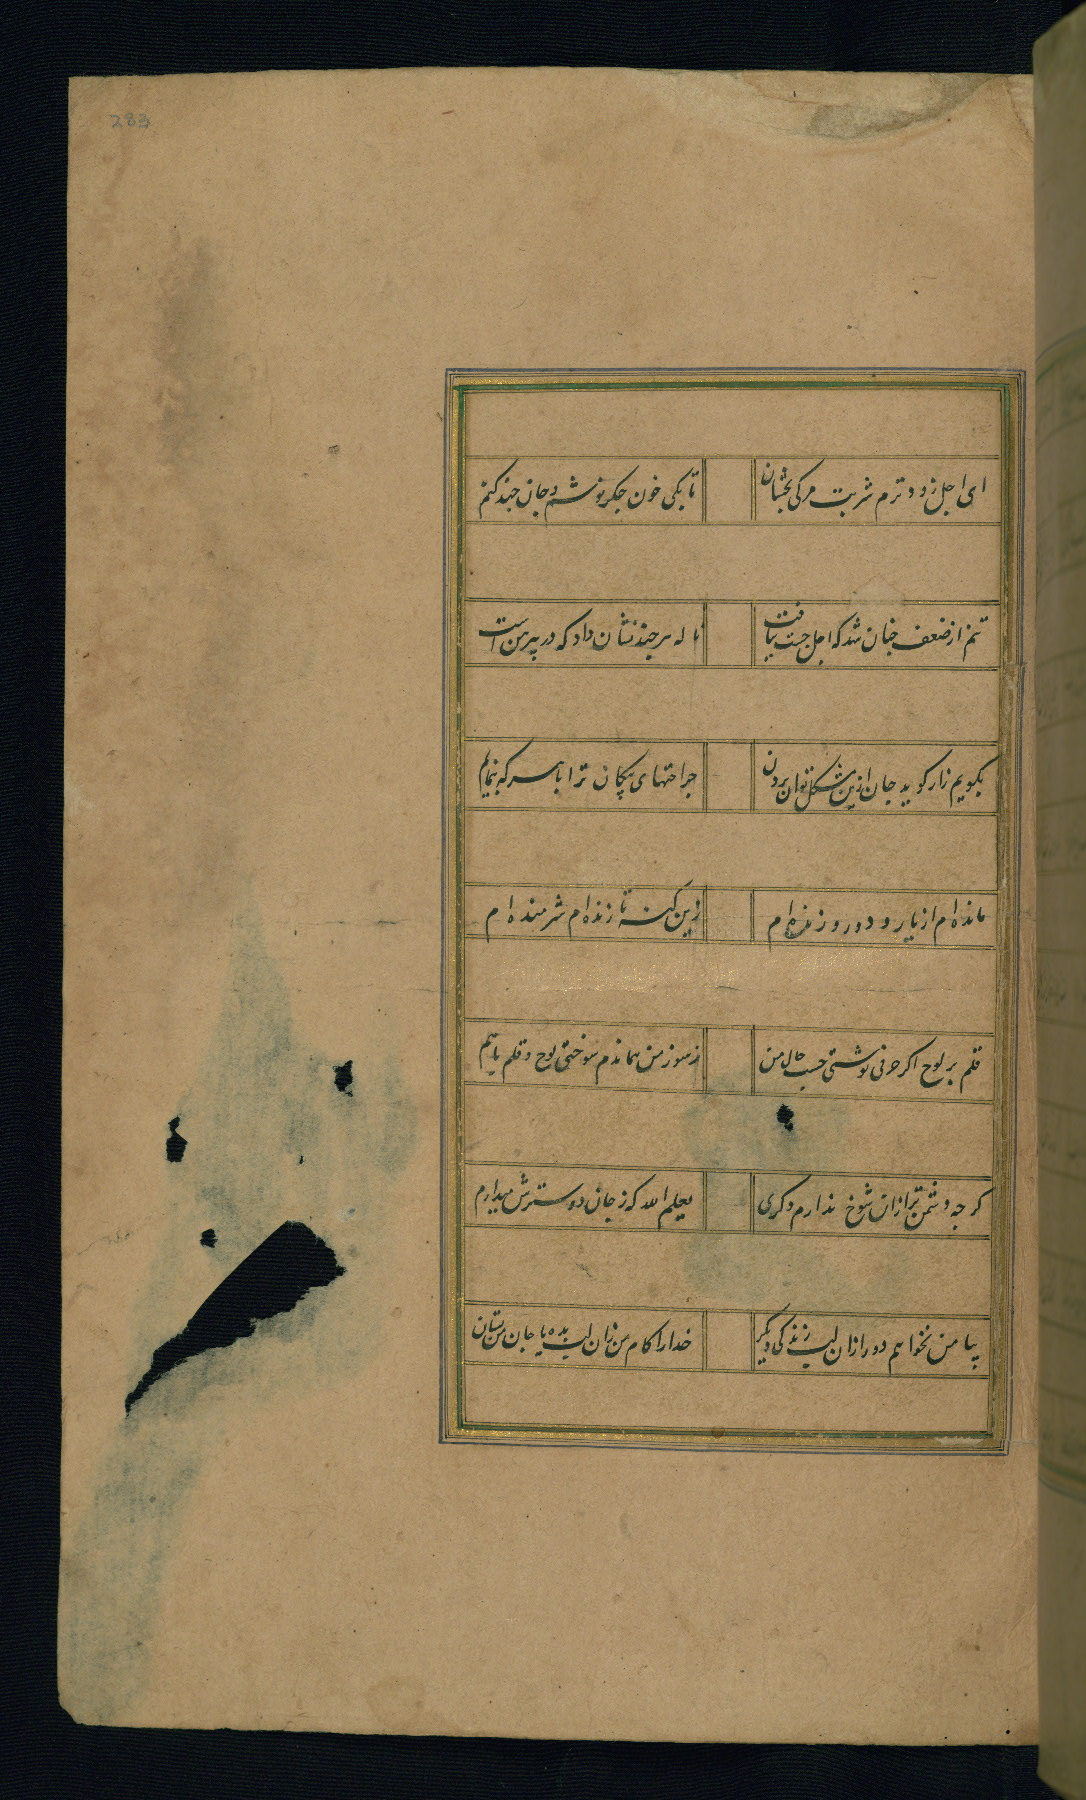 283
ای اجل زودترم شربت مرکی بخشان تا بکی خون جکر نوشم و جان جند کنم
تنم از ضعف جنان شد که اجل جست نیافت ناله هر جند نشان داد که در پیرهن است
بکویم زار کوید جان ازین مشکل توان بردن جراحتهای پیکان ترا با هر که بنمایم
مانده ام از یار و دور و زنده ام زین کنه تا زنده ام شرمنده ام
قلم بر لوح اکر حرفی نوشتی حسب حال من ز سوز من هماندم سوختی لوح و قلم باهم
کر جه دشمن تر ازان شوخ ندارم دکری یعلم الله که ز جان دوسترش میدارم
بیا من نخواهم دور ازان لب زندکی دیکر خدارا کام من زان لب بده یا جان من بستان